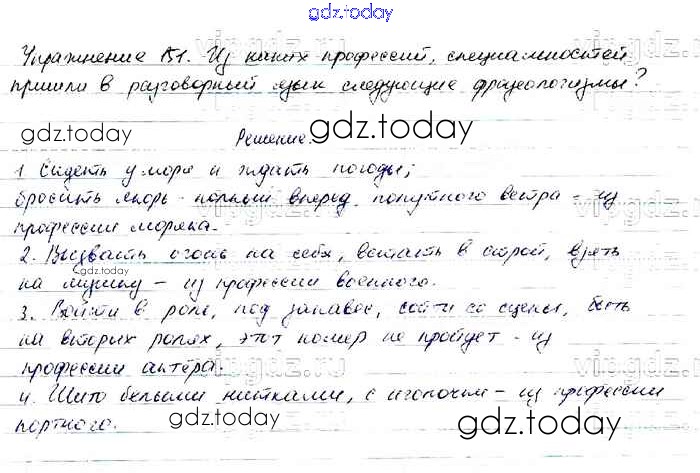 gdz.today
Упражнение 151. Из каких профессий, специальностей
пришли в разговорный язык следующие фразеологизмы?
gdz.today
Решение.
gdz.today
1. Сидеть у моря и ждать погоды;
бросить якорь - полный вперед, попутного ветра - из
профессии моряка.
2. Вызвать огонь на себя, встать в строй, взять
gdz.today
на мушку - из профессии военного.
3. Войти в роль, под занавес, сойти со сцены, быть
на вторых ролях, этот номер не пройдет - из
профессии актёра.
4. Шито белыми нитками, с иголочки - из профессии
портного.
gdz.today
gdz.today